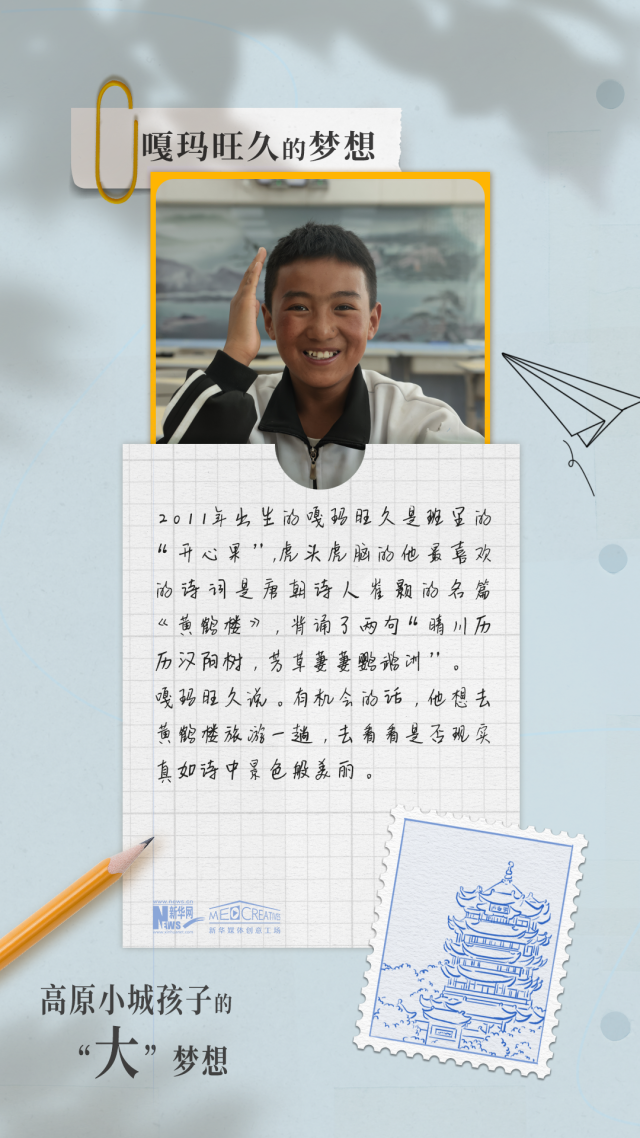 嘎玛旺久的梦想
2011年出生的嘎玛旺久是班里的
“开心果”,虎头虎脑的他最喜欢
的诗词是唐朝诗人崔颢的名篇
《黄鹤楼》，背诵了两句“晴川历
历汉阳树，芳草萋萋鹦鹉洲”。
嘎玛旺久说。有机会的话，他想去
黄鹤楼旅游一趟，去看看是否现实
真如诗中景色般美丽。
www.news.cn
NEWS 新华网 MEDCREATIVE
新华媒体创意工场
高原小城孩子的
“大”梦想